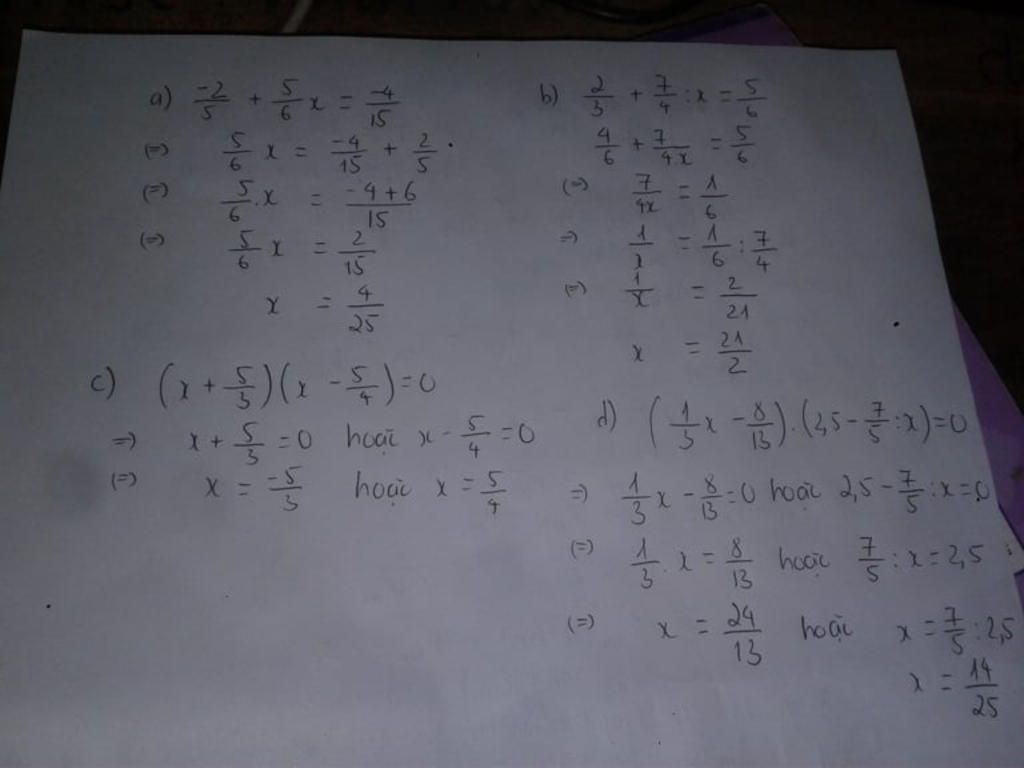 a) -2/5 + 5/6 x = -4/15
(=) 5/6 x = -4/15 + 2/5 .
(=) 5/6 . x = -4+6/15
(=) 5/6 x = 2/15
x = 4/25
b) 2/3 + 7/4 : x = 5/6
4/6 + 7/4x = 5/6
(=) 7/4x = 1/6
=) 1/x = 1/6 : 7/4
(=) 1/x = 2/21
x = 21/2
c) (x + 5/3)(x - 5/4) = 0
=) x + 5/3 = 0 hoặc x - 5/4 = 0
(=) x = -5/3 hoặc x = 5/4
d) (1/3 x - 8/13) . (2,5 - 7/5 : x) = 0
=) 1/3 x - 8/13 = 0 hoặc 2,5 - 7/5 : x = 0
(=) 1/3 . x = 8/13 hoặc 7/5 : x = 2,5
(=) x = 24/13 hoặc x = 7/5 : 2,5
x = 14/25